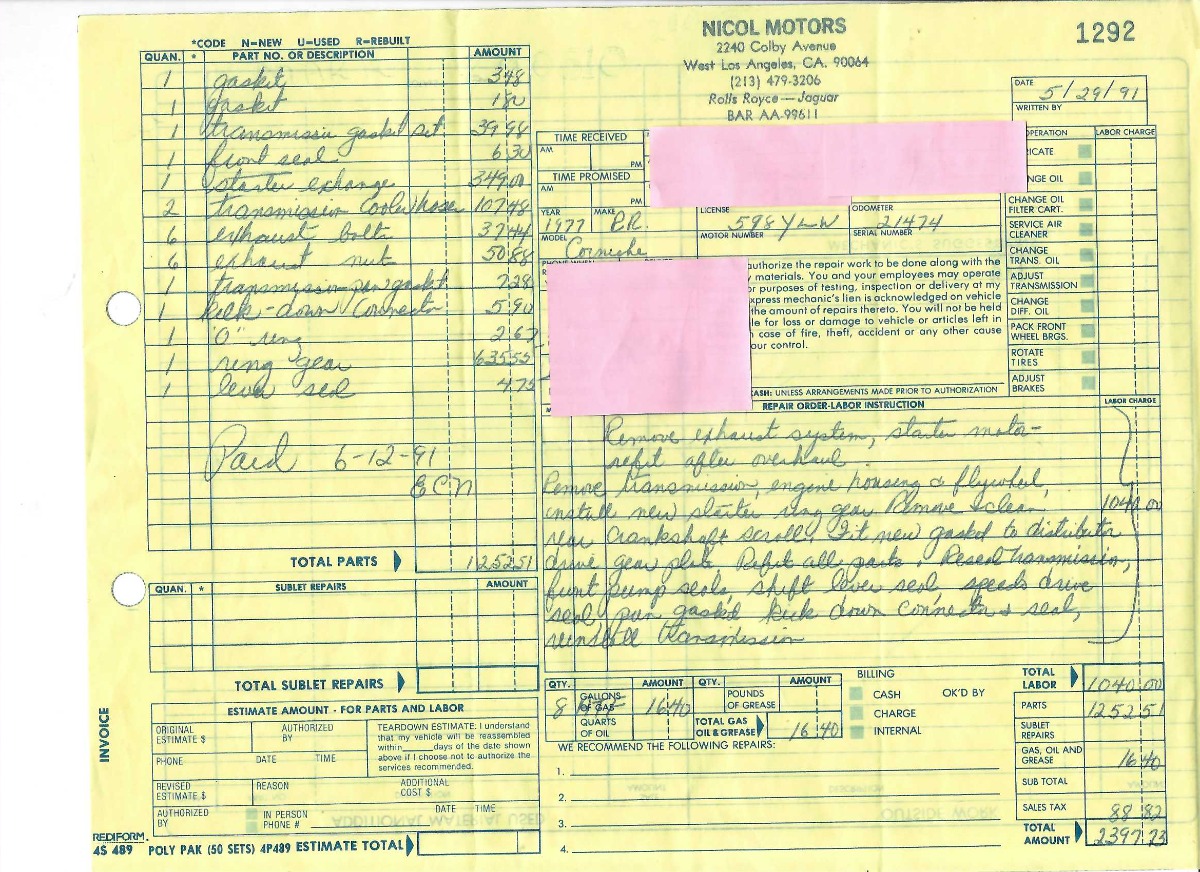 NICOL MOTORS
2240 Colby Avenue
West Los Angeles, CA. 90064
(213) 479-3206
Rolls Royce — Jaguar
BAR AA-99611
1292
*CODE N=NEW U=USED R=REBUILT
QUAN. * PART NO. OR DESCRIPTION AMOUNT
1 gasket 3 48
1 gasket 1 80
1 transmission gasket set 39 98
1 front seal 6 30
1 starter exchange 349.00
2 transmission cooler hoses 107 48
6 exhaust bolts 37 44
6 exhaust nut 50 88
1 transmission pan gasket 7 28
1 kick-down connector 5 90
1 "O" ring 2.67
1 ring gear 635 55
1 lever seal 4.75
Paid 6-12-91
ECN
TOTAL PARTS 1252 51
QUAN. * SUBLET REPAIRS AMOUNT
TOTAL SUBLET REPAIRS
ESTIMATE AMOUNT - FOR PARTS AND LABOR
ORIGINAL ESTIMATE $
AUTHORIZED BY
PHONE DATE TIME
TEARDOWN ESTIMATE: I understand
that my vehicle will be reassembled
within______days of the date shown
above if I choose not to authorize the
services recommended.
REVISED ESTIMATE $
REASON
ADDITIONAL COST $
AUTHORIZED BY
IN PERSON
PHONE #
DATE TIME
INVOICE
REDIFORM.
4S 489 POLY PAK (50 SETS) 4P489 ESTIMATE TOTAL
DATE 5/29/91
WRITTEN BY
TIME RECEIVED
AM PM
TIME PROMISED
AM PM
YEAR 1977 MAKE R.R.
LICENSE 598 YLW
ODOMETER 21474
MODEL Corniche
MOTOR NUMBER
SERIAL NUMBER
authorize the repair work to be done along with the
materials. You and your employees may operate
or purposes of testing, inspection or delivery at my
xpress mechanic's lien is acknowledged on vehicle
the amount of repairs thereto. You will not be held
le for loss or damage to vehicle or articles left in
case of fire, theft, accident or any other cause
our control.
CASH: UNLESS ARRANGEMENTS MADE PRIOR TO AUTHORIZATION
OPERATION LABOR CHARGE
RICATE
NGE OIL
CHANGE OIL FILTER CART.
SERVICE AIR CLEANER
CHANGE TRANS. OIL
ADJUST TRANSMISSION
CHANGE DIFF. OIL
PACK FRONT WHEEL BRGS.
ROTATE TIRES
ADJUST BRAKES
REPAIR ORDER-LABOR INSTRUCTION LABOR CHARGE
Remove exhaust system, starter motor-
refit after overhaul.
Remove transmission, engine housing & flywheel,
install new starter ring gear Remove & clean 1040 00
rear crankshaft scroll. Fit new gasket to distributor
drive gear plate. Refit all parts. Reseal transmission,
front pump seals, shift lever seal, speedo drive
seal, pan gasket kick down connector & seal,
reinstall transmission
QTY. AMOUNT QTY. AMOUNT
8 GALLONS OF GAS 16 40 POUNDS OF GREASE
QUARTS OF OIL TOTAL GAS OIL & GREASE 16 40
BILLING
CASH OK'D BY
CHARGE
INTERNAL
WE RECOMMEND THE FOLLOWING REPAIRS:
1.
2.
3.
4.
TOTAL LABOR 1040.00
PARTS 1252 51
SUBLET REPAIRS
GAS, OIL AND GREASE 16 40
SUB TOTAL
SALES TAX 88 82
TOTAL AMOUNT 2397.73